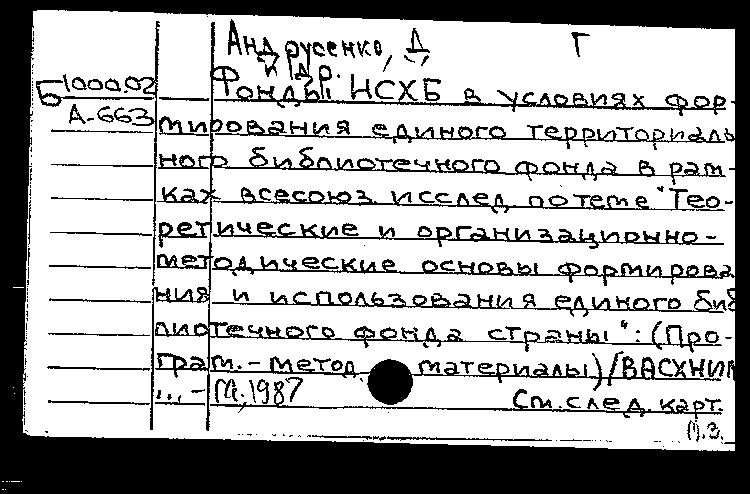 Андрусенко, Д Г
и др.
Б 1000.02 Фонды НСХБ в условиях фор-
А-663 мирования единого территориаль
ного библиотечного фонда в рам-
ках всесоюз. исслед по теме "Тео-
ретические и организационно-
методические основы формирова
ния и использования единого биб
лиотечного фонда страны": (Про-
грам.-метод. материалы)/ВАСХНИЛ
...- М., 1987
См. след. карт.
М.З.